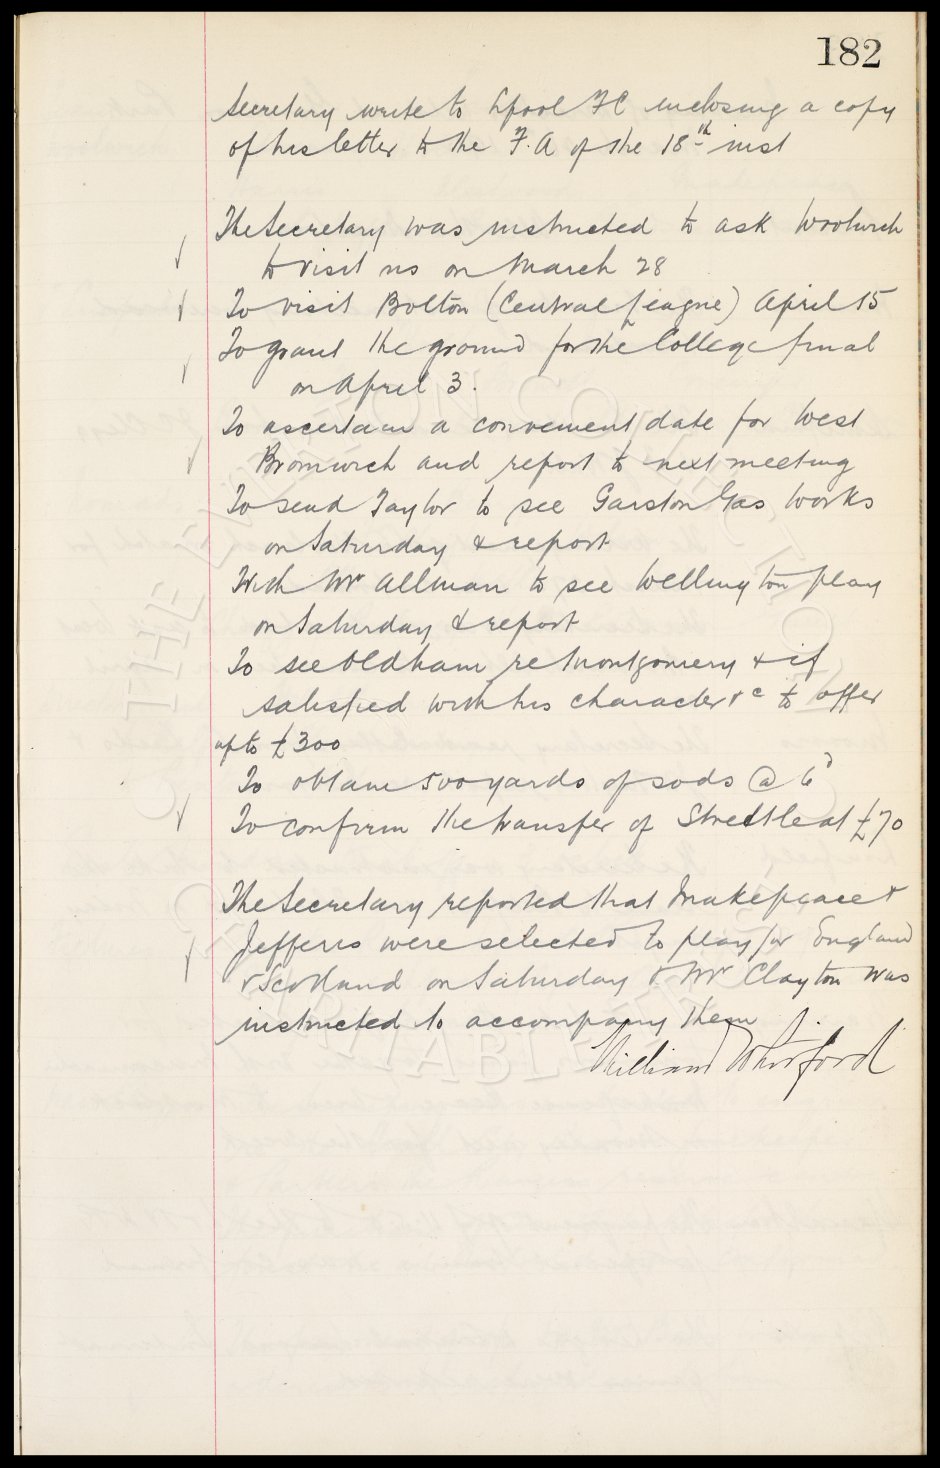 182
Secretary write to Lpool FC inclosing a copy
of his letter to the F.A of the 18th inst
The Secretary was instructed to ask Woolwich
to visit us on March 28
To visit Bolton (Central League) April 15
To grant the ground for the College final
on April 3.
To ascertain a convenient date for West
Bromwich and report to next meeting
To send Taylor to see Garston Gas Works
on Saturday & report
With Mr Allman to see Wellington play
on Saturday & report
To see Oldham re Montgomery & if
satisfied with his character &c to offer
up to £300
To obtain 500 yards of sods @ 6d
To confirm the transfer of Strettle at £70
The Secretary reported that Makepeace &
Jefferis were selected to play for England
v Scotland on Saturday & Mr Clayton was
instructed to accompany them
William Whitford
THE EVERTON COLLECTION
CHARITABLE TRUST